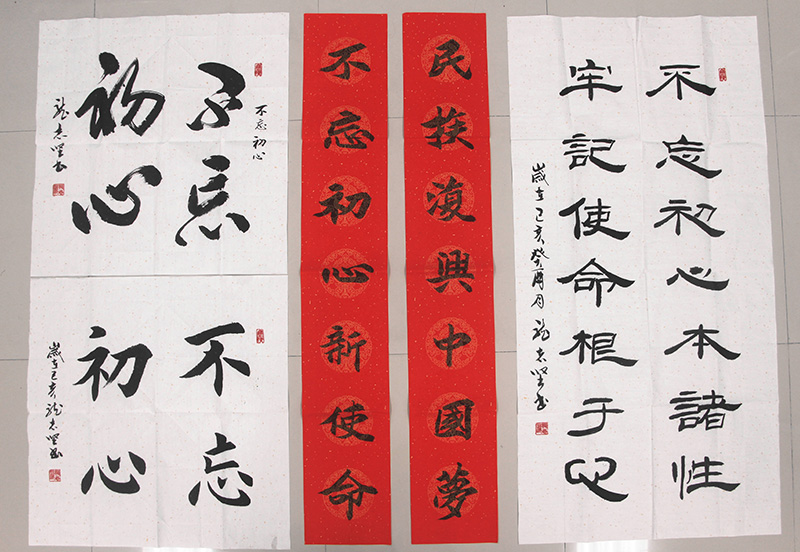 不忘初心本諸性
牢記使命根于心
歲在己亥癸酉月 龍志坚书
民族復興中國夢
不忘初心新使命
不忘初心
不忘
初心
龍志坚书
不忘
初心
歲在己亥龍志坚书